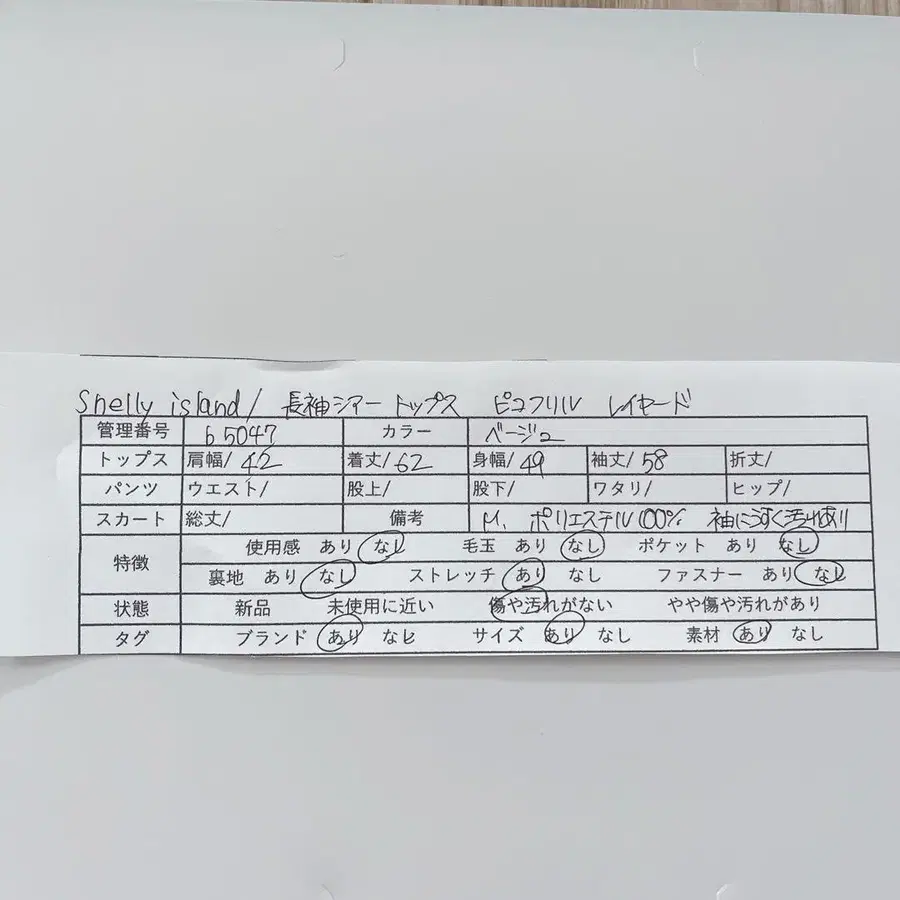 Shelly island/ 長袖シアートップス ピコフリル レイヤード
管理番号 b5047 カラー ベージュ
トップス 肩幅/ 42 着丈/ 62 身幅/ 49 袖丈/ 58 裄丈/
パンツ ウエスト/ 股上/ 股下/ ワタリ/ ヒップ/
スカート 総丈/ 備考 M、ポリエステル100% 袖にうすく汚れあり
特徴 使用感 あり なし 毛玉 あり なし ポケット あり なし
裏地 あり なし ストレッチ あり なし ファスナー あり なし
状態 新品 未使用に近い 傷や汚れがない やや傷や汚れがあり
タグ ブランド あり なし サイズ あり なし 素材 あり なし